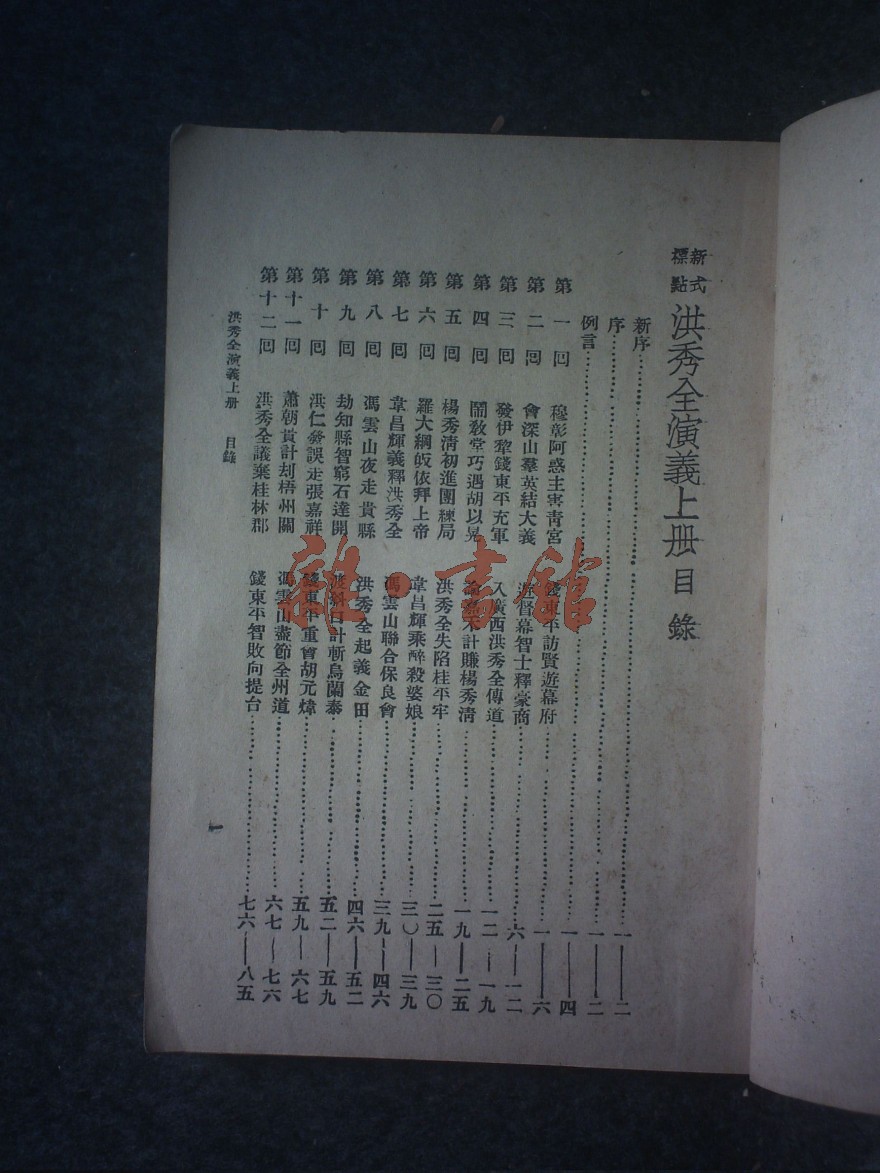 新式標點 洪秀全演義上册目錄
新序……一——二
序……一——二
例言……一——四
第一回 穆彰阿惑主害青宮 錢東平訪賢遊幕府……一——六
第二回 會深山羣英結大義 遊督幕智士釋豪商……六——一二
第三回 發伊犂錢東平充軍 入廣西洪秀全傳道……一二——一九
第四回 鬧教堂巧遇胡以晃 計賺楊秀清……一九——二五
第五回 楊秀清初進團練局 洪秀全失陷桂平牢……二五——三〇
第六回 羅大綱皈依拜上帝 韋昌輝乘醉殺婆娘……三〇——三九
第七回 韋昌輝義釋洪秀全 馮雲山聯合保良會……三九——四六
第八回 馮雲山夜走貴縣 洪秀全起義金田……四六——五二
第九回 劫知縣智窮石達開 計斬烏蘭泰……五二——五九
第十回 洪仁發誤走張嘉祥 錢東平重會胡元煒……五九——六七
第十一回 蕭朝貴計刦梧州關 馮雲山盡節全州道……六七——七六
第十二回 洪秀全議棄桂林郡 錢東平智敗向提台……七六——八五
洪秀全演義上册 目錄
一
雜·書館